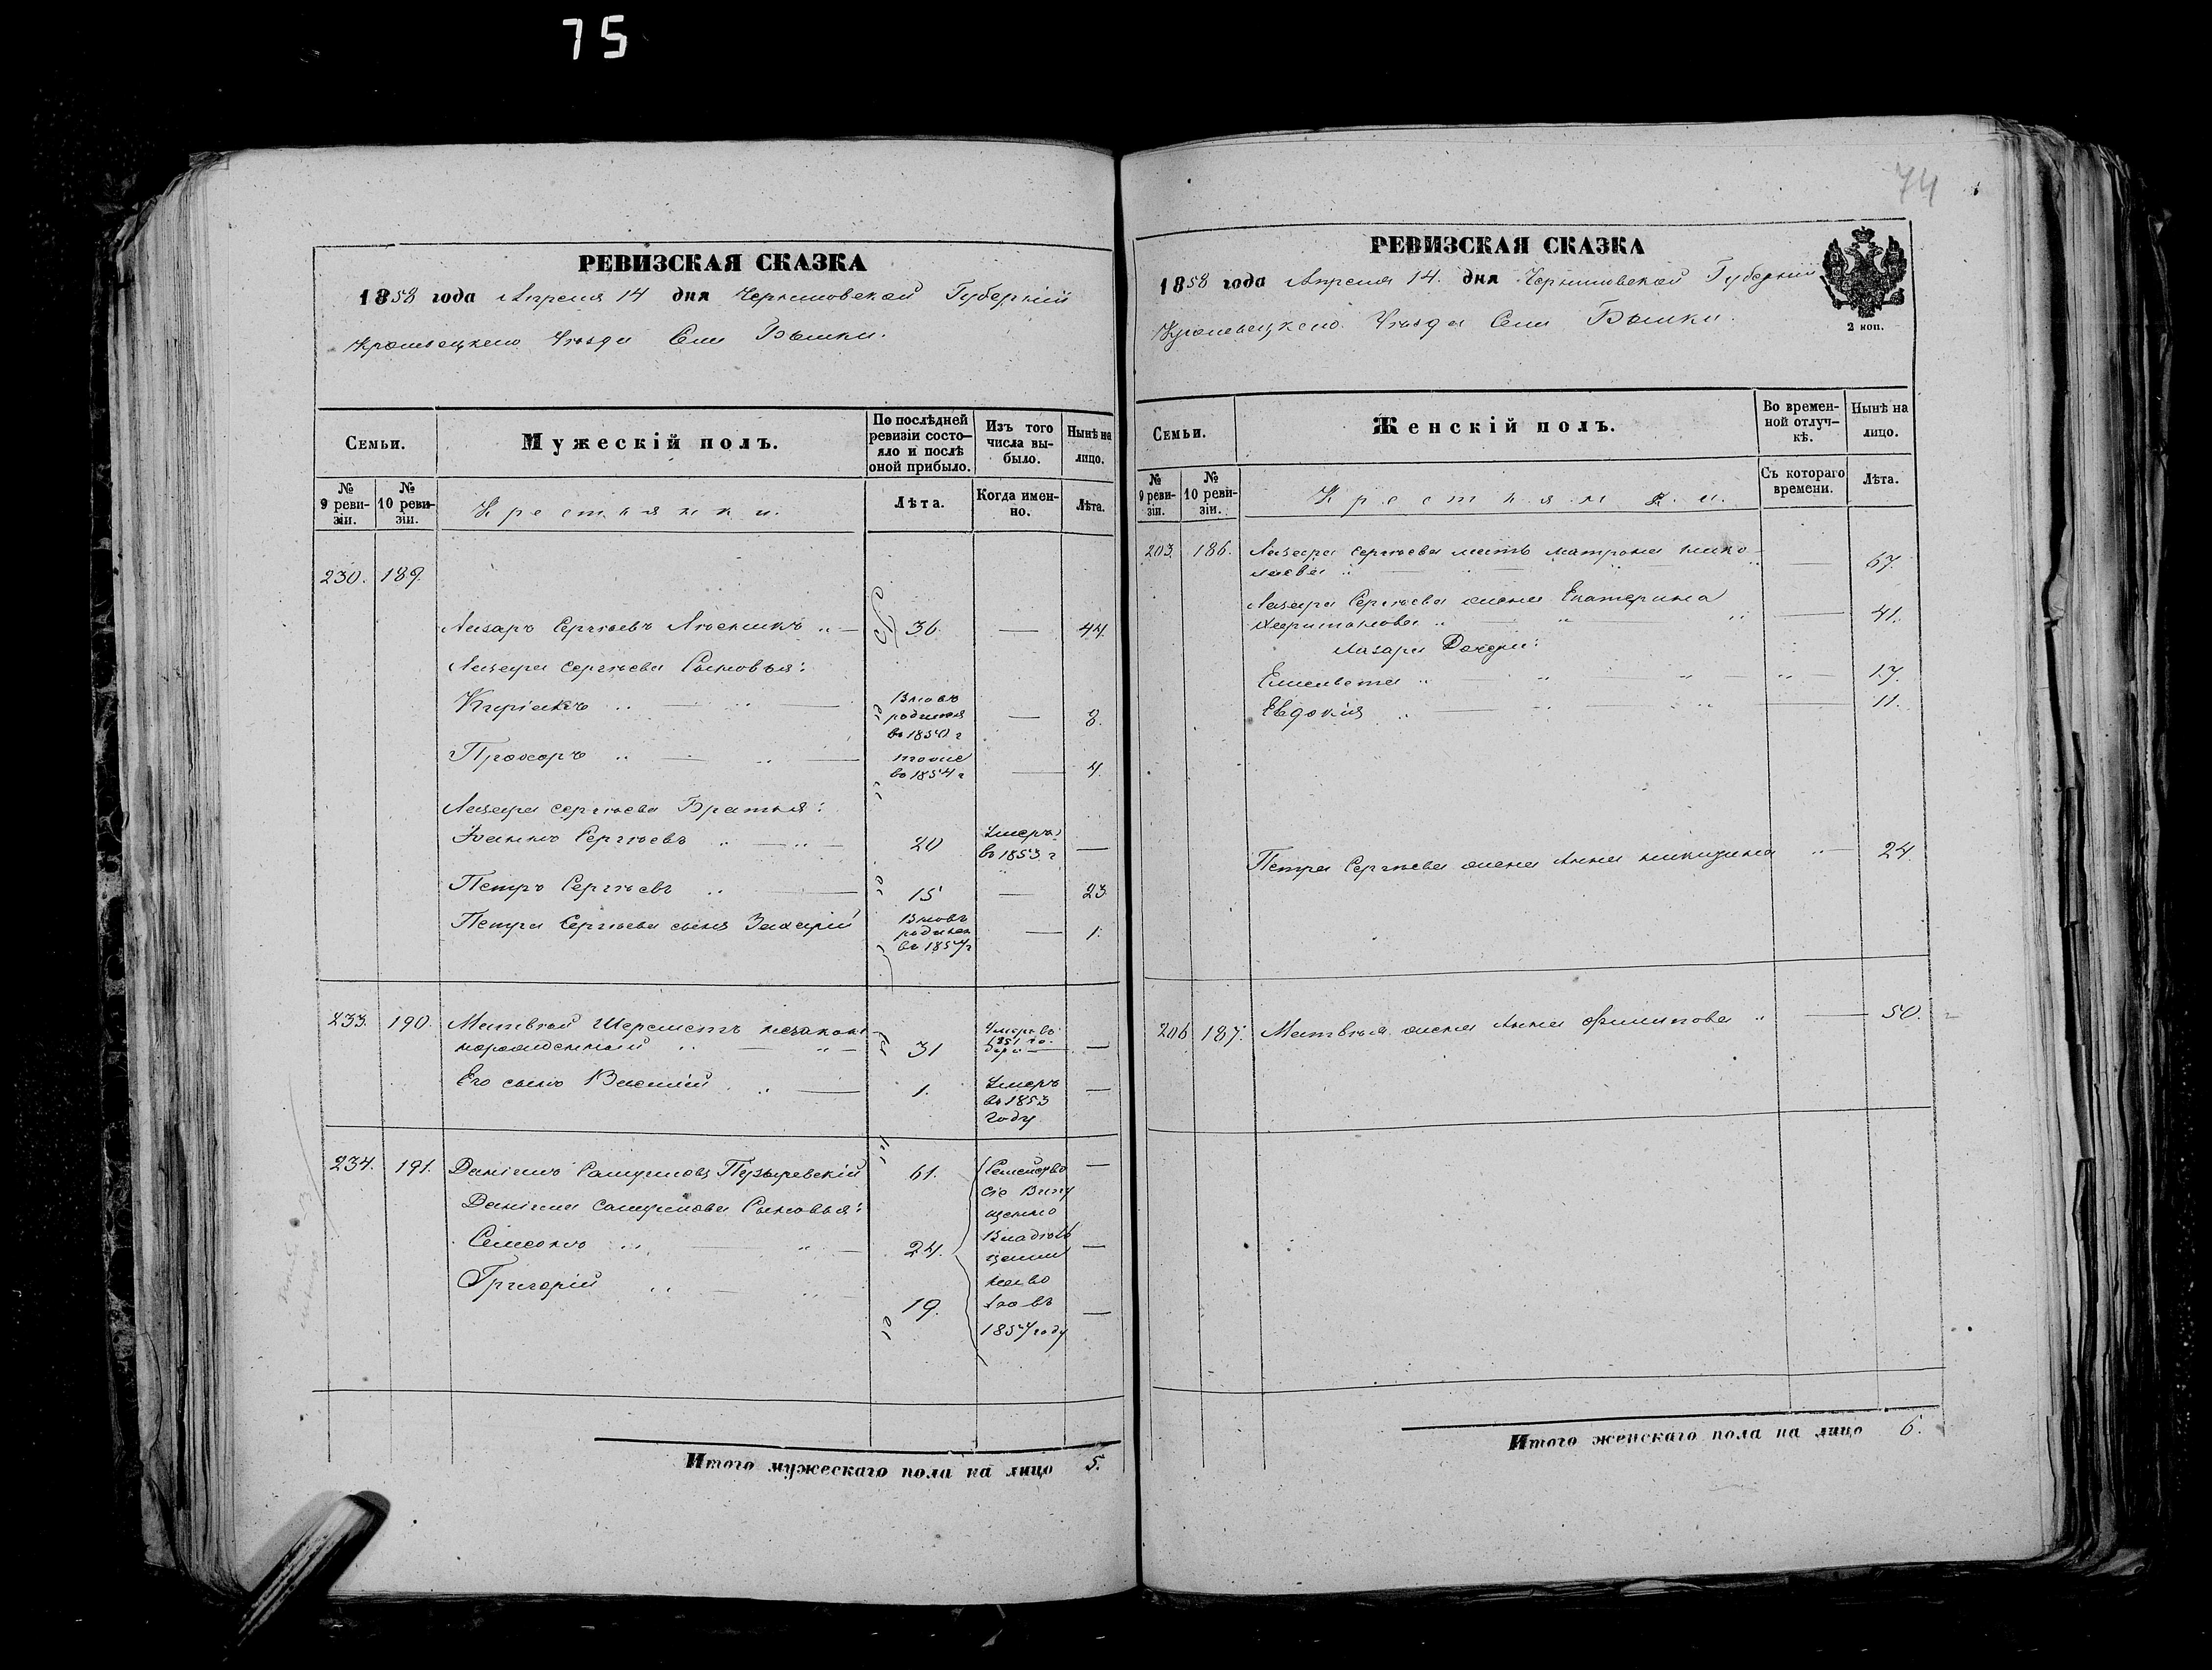 75
РЕВИЗСКАЯ СКАЗКА
1858 года Апреля 14 дня Черниговской Губернiи
Кролевецкаго Уезда Села Бышки.
Семьи.
Мужескій полъ.
По послѣдней ревизіи состояло и послѣ оной прибыло.
Изъ того числа выбыло.
Нынѣ на лицо.
№ 9 ревизіи.
№ 10 ревизіи.
Крестьянки.
Лѣта.
Когда именно.
Лѣта.
230. 189.
Лазаръ Сергѣевъ 36. — 44.
Лазаря Сергѣева Сыновья:
Вновь
родился
въ 1850 г — 8.
Прохоръ тоже
въ 1854 г — 4.
Лазаря Сергѣева Братья:
Іоаннъ Сергѣевъ 20 Умеръ
въ 1853 г —
Петръ Сергѣевъ 15 — 23
Петра Сергѣева сынъ Захарій Вновь
рожден
въ 1857 г — 1.
233. 190. Матвѣй Шереметъ незаконнорожденный 31 Умеръ въ
1851 го
ду —
Его сынъ Василій 1. Умеръ
въ 1853
году —
234. 191. Даніилъ Самуиловъ Пузыревскій 61. Семейство —
сіе
Даніила Самуилова Сыновья:
Симеонъ 24. —
Григорій 19. —
въ
1857 году
Итого мужескаго пола на лицо 5.
74
РЕВИЗСКАЯ СКАЗКА
1858 года Апреля 14. дня Черниговской Губернiи
Кролевецкаго Уезда Села Бышки.
2 коп.
Семьи.
Женскій полъ.
Во временной отлучкѣ.
Нынѣ на лицо.
№ 9 ревизіи.
№ 10 ревизіи.
Крестьянки.
Съ котораго времени.
Лѣта.
203. 186. Лазаря Сергѣева мать Матрона Нико-
лаева — 67.
Лазаря Сергѣева жена Екатерина
Харитонова — 41.
Лазаря Дочери:
Елисавета 17.
Евдокія 11.
Петра Сергѣева жена Анна Никитина — 24.
206 187. Матвѣя жена Анна Филипова — 50.
Итого женскаго пола на лицо 6.